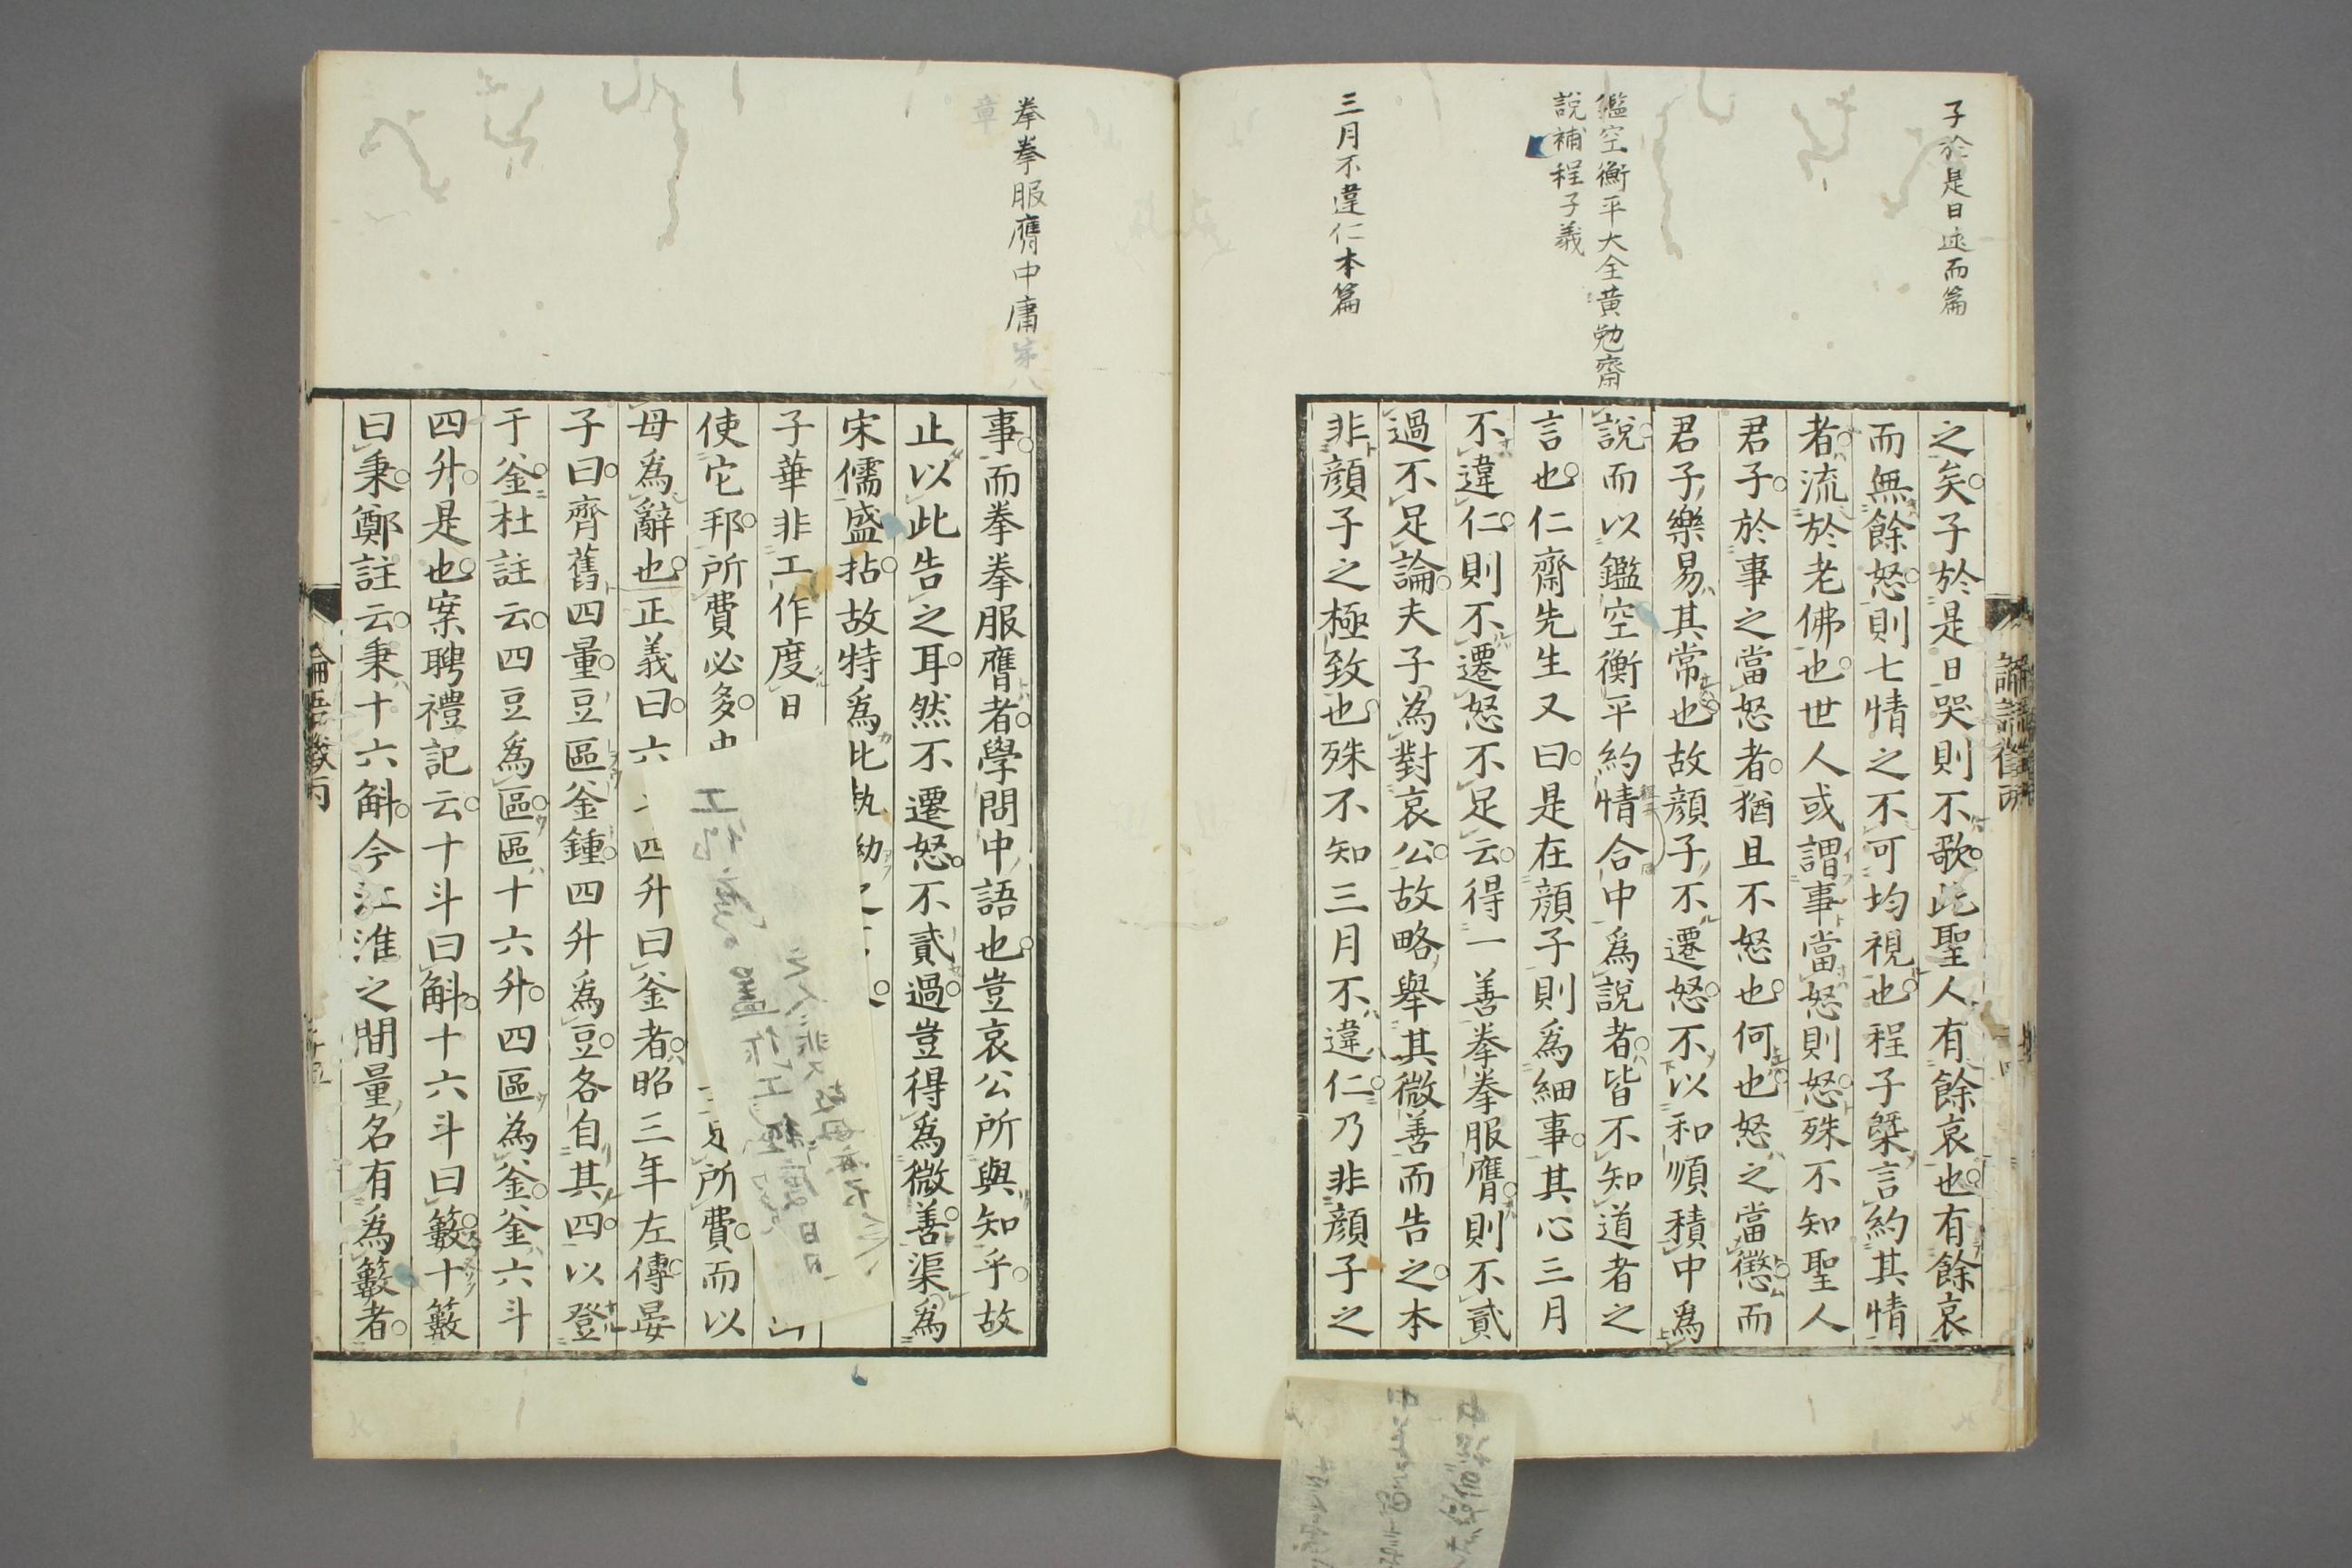 子於是日述而篇
鑑空衡平大全黄勉齋
說補程子義
三月不違仁本篇
之矣子於是日哭則不歌此聖人有餘哀也有餘哀
而無餘怒則七情之不可均視也程子槩言約其情
者流於老佛也世人或謂事當怒則怒殊不知聖人
君子於事之當怒者猶且不怒也何也怒之當懲而
君子樂易其常也故顔子不遷怒不以和順積中爲
說而以鑑空衡平約情合中爲說者皆不知道者之
言也仁齋先生又曰是在顔子則爲細事其心三月
不違仁則不遷怒不足云得一善拳拳服膺則不貳
過不足論夫子為對哀公故略舉其微善而告之本
非顔子之極致也殊不知三月不違仁乃非顔子之
拳拳服膺中庸第八
章
事而拳拳服膺者學問中語也豈哀公所與知乎故
止以此告之耳然不遷怒不貳過豈得爲微善渠爲
宋儒盛拈故特爲此執拗之
子華非工作度日
使它邦所費必多 所費而以
母爲辭也正義曰六 四升曰釜者昭三年左傳晏
子曰齊舊四量豆區釜鍾四升爲豆各自其四以登
于釜杜註云四豆爲區區十六升四區為釜釜六斗
四升是也案聘禮記云十斗曰斛十六斗曰籔十籔
曰秉鄭註云秉十六斛今江淮之間量名有爲籔者